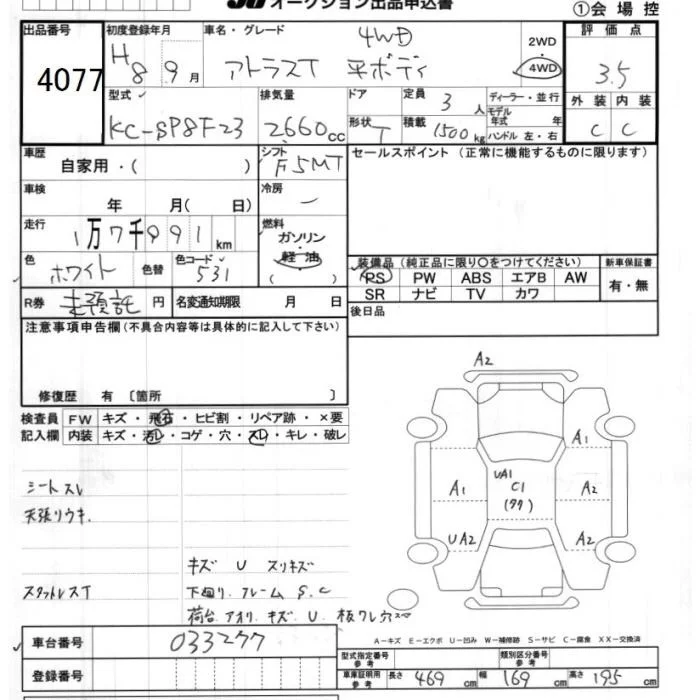 オークション出品申込書
①会場控
出品番号 初度登録年月 車名・グレード 4WD 2WD 評価点
4077 H8 9月 アトラスT 平ボディ 4WD 3.5
型式 排気量 ドア 定員 3人 ディーラー・並行 外装 内装
KC-SP8F23 2660cc 形状 T 積載 1500kg モデル年式 年 ハンドル 左・右 C C
車歴 自家用・( ) シフト F5MT セールスポイント (正常に機能するものに限ります)
車検 年 月( 日) 冷房 ー
走行 1万7千991km 燃料 ガソリン・軽油 ( )
色 ホワイト 色替 色コード 531
装備品 (純正品に限り○をつけてください) 新車保証書
PS PW ABS エアB AW 有・無
SR ナビ TV カワ
R券 未預託 円 名変通知期限 月 日 後日品
注意事項申告欄(不具合内容等は具体的に記入して下さい)
修復歴 有 〔箇所 〕
検査員 FW キズ・飛石・ヒビ割・リペア跡・×要
記入欄 内装 キズ・汚レ・コゲ・穴・スレ・キレ・破レ
シートスレ
天張リウキ.
スタットレスT
キズ U スリキズ
下廻り. フレーム S.C
荷台. アオリ. キズ. U. 板ワレ穴
A2
A1
UA1
C1
A1 A2
UA2 A2
A-キズ E-エクボ U-凹み W-補修跡 S-サビ C-腐食 XX-交換済
車台番号 033277
登録番号
型式指定番号 参考 類別区分番号 参考
車庫証明用 参考 長さ 469cm 幅 169cm 高さ 195cm